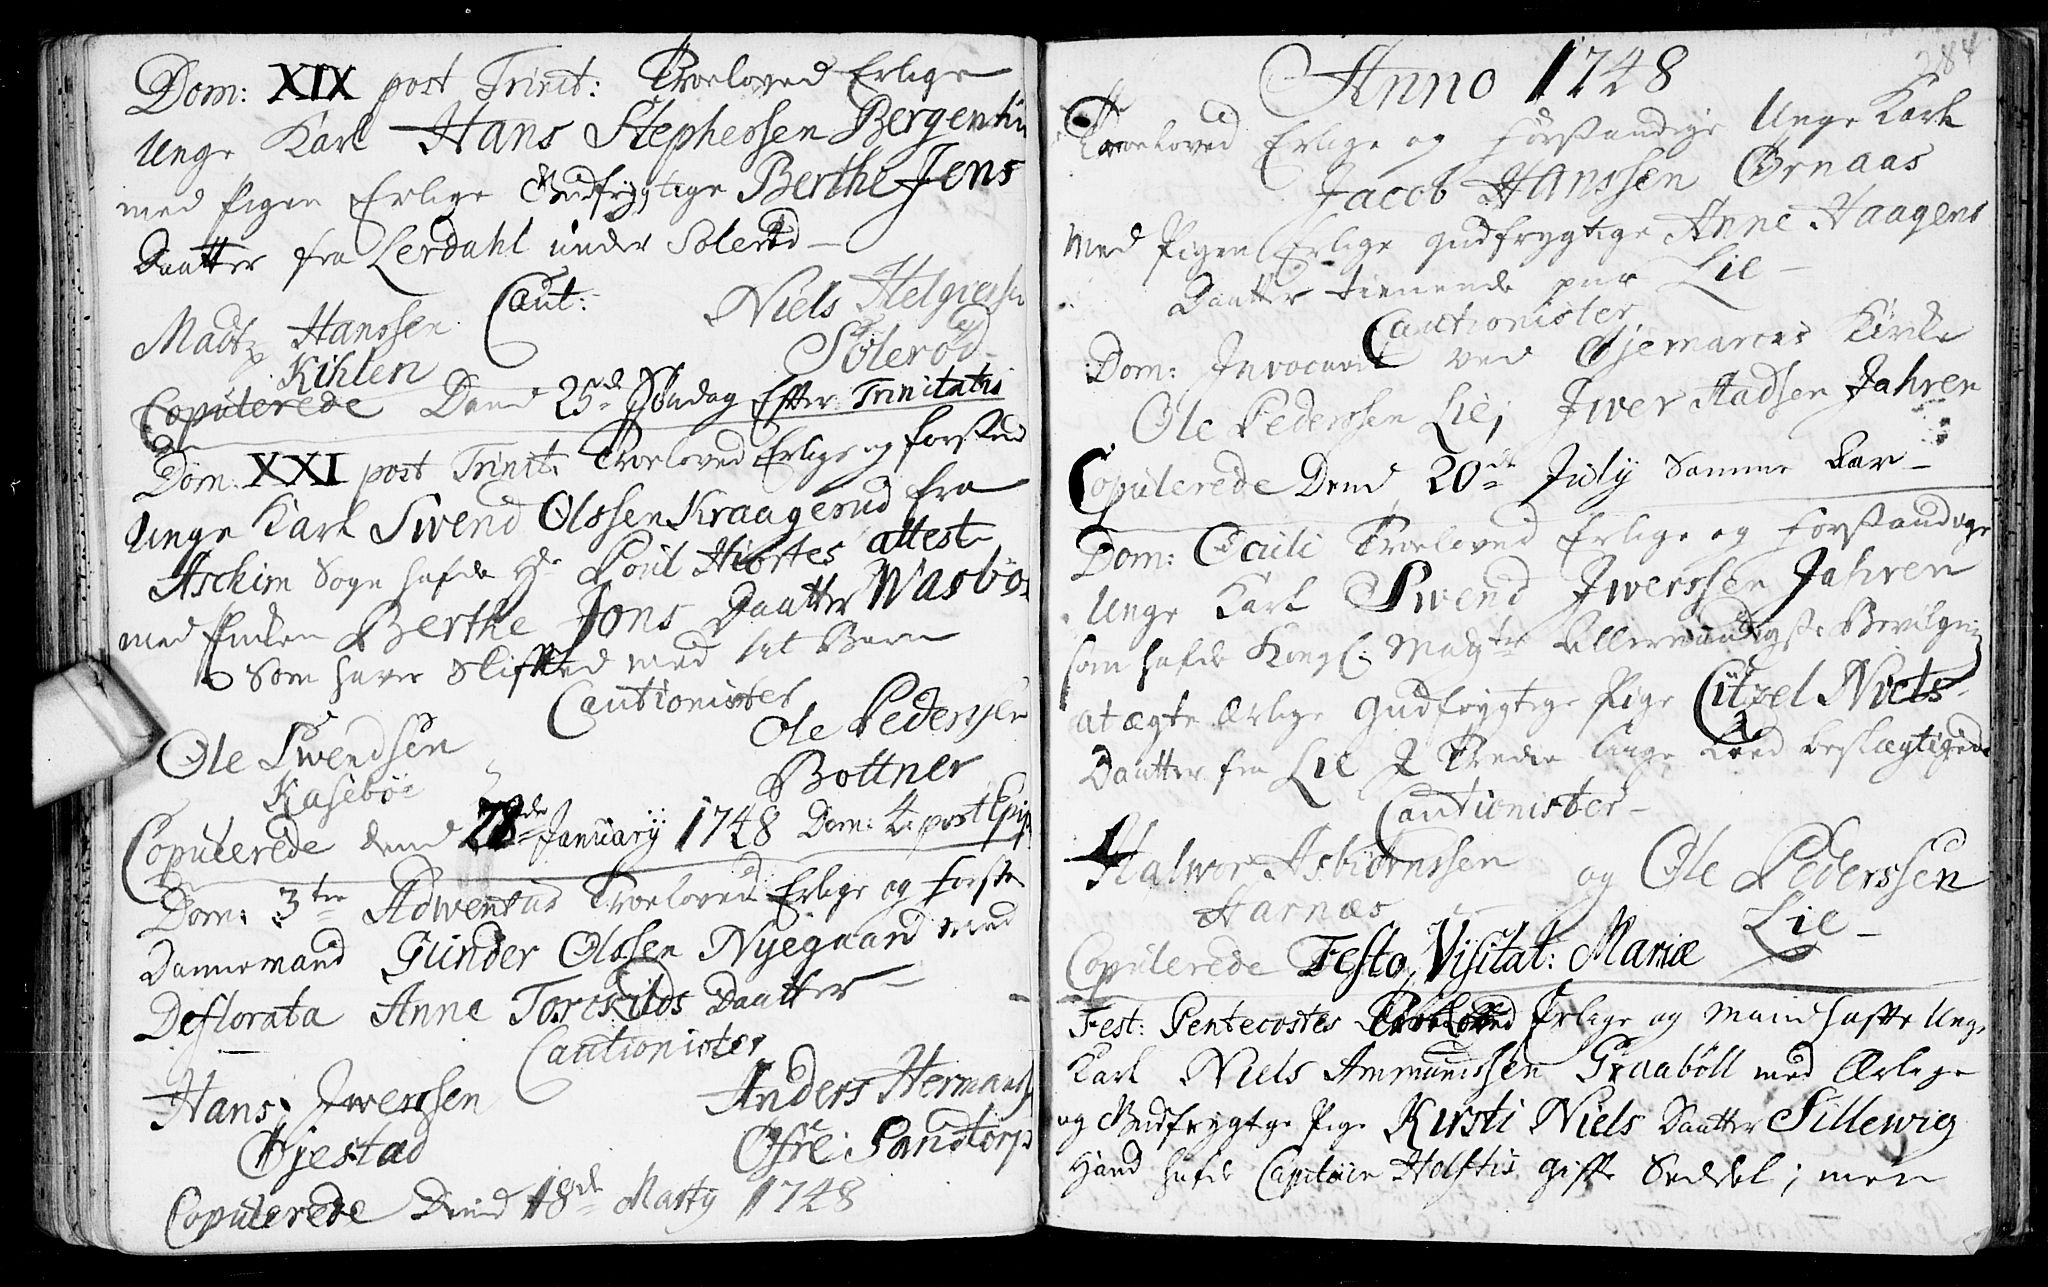 Dom: XIX post Trinit: Troeloved Erlige
Unge Karl Hans Stephessen
med Pigen Erlige Gudfrygtige Berthe Jens
Daatter fra Lerdahl under Solerød
Caut:
Madtz Hanssen Niels Helgessen
Kihlen Sølerød
Copulerede Dend 25de Søndag Efter Trinitatis
Dom. XXI post Trinit: Troeloved Erlige og forstand
Unge Karl Swend Olssen Kraagerud fra
Aschim Sogn hafde Hr Poul Hiortes attest
med Enken Berthe Jons Daatter Wasbøe
Som haver Skiftted med sit Barn
Cautionister
Ole Swendsen Ole Pederssen
Kasebøe Bottner
Copulerede dend 28de January 1748 Dom: 4. post Epip
Dom: 3tie Adventus Troeloved Erlige og forst
Dannemand Gunder Olssen Nyegaard med
Deflorata Anne Torckilds Daatter
Cautionister
Hans Iwerssen Anders Hermans
Giestad Ofre Sandtorp
Copulerede Dend 18de Marty 1748
284
Anno 1748
Troeloved Erlige og forstandige Unge Karl
Jacob Hanssen Ørnaas
med Pigen Erlige gudfrygtige Anne Haagens
Daatter tienende paa Lie
Cautionister
Dom: Invocavit ved Kirke
Ole Pederssen Lie, Iwer Jahren
Copulerede Dend 20de July Samme Aar
Dom: Oculi Troeloved Erlige og forstandige
Unge Karl Swend Iwerssen Jahren
som hafde Kongl: May:ts Allernaadigste Bevilgning
at ægte Ærlige Gudfrygtige Pige Citzel Niels
Daatter fra Lie I Tredie Leed beslægtigede
Cautionister
Halwor Asbiørnssen og Ole Pederssen
Harnæs Lie
Copulerede Festo Visitat: Mariæ
Fest: Pentecostes Troeloved Erlige og Mandhafte Unge
Karl Niels Ammunssen Graabøll med Ærlige
og Gudfrygtige Pige Kirsti Niels Daatter Sillewig
Hand hafde Capitain Holstis Gifte Seddel; men